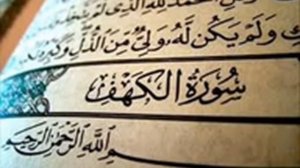 حَمْدُ لِلَّهِ الَّذِي لَمْ
وَلَمْ يَكُن لَّهُ وَلِيٌّ مِّنَ الذُّلِّ
سُورَةُ الْكَهْفِ
بِسْمِ اللَّهِ الرَّحْمَٰنِ الرَّحِيمِ